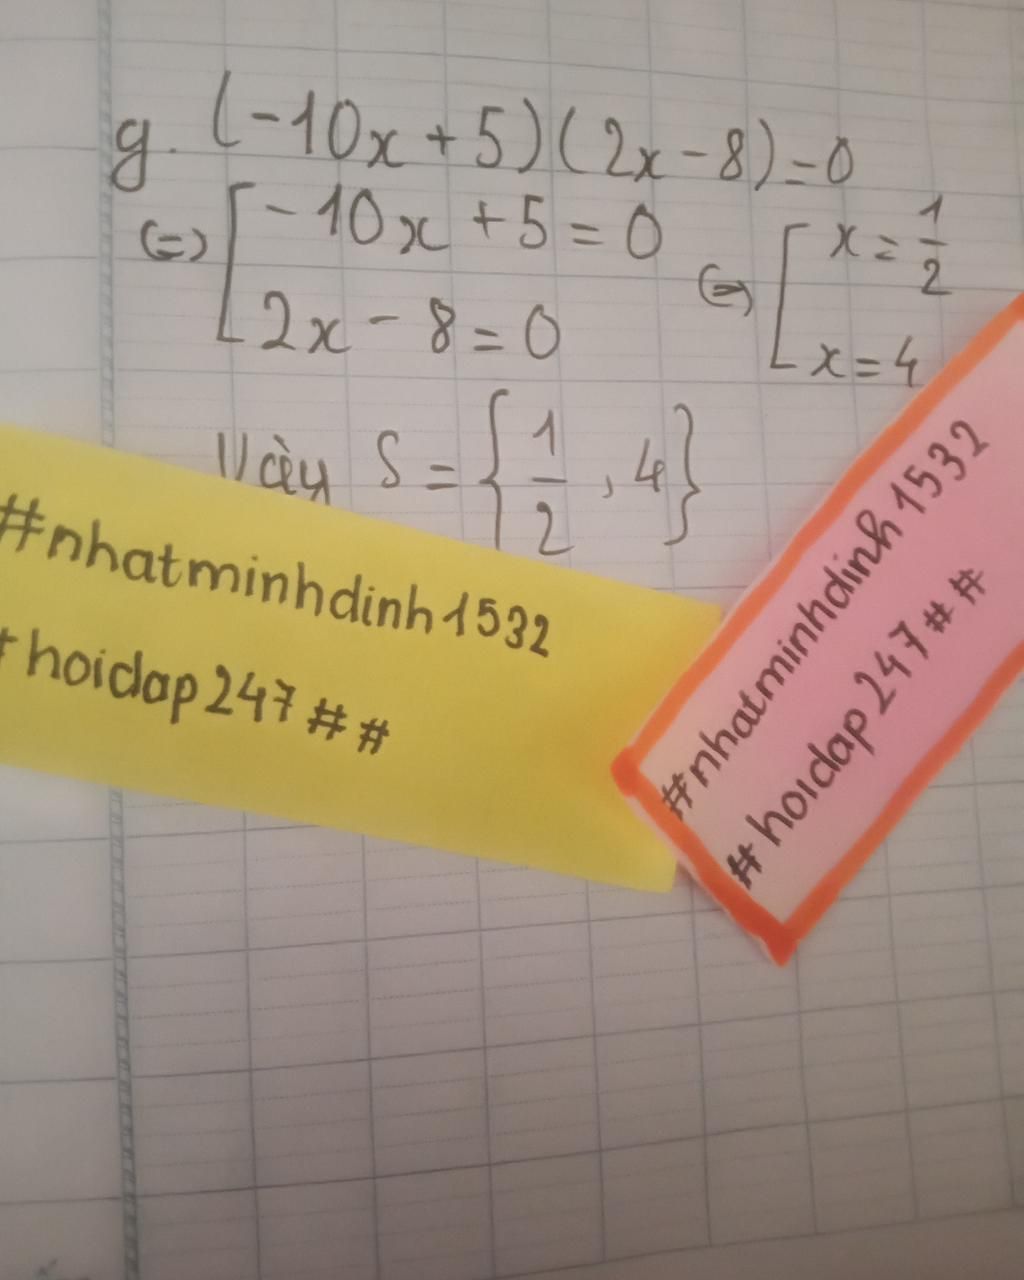 g. (-10x + 5)(2x - 8) = 0
(=) [ -10x + 5 = 0
2x - 8 = 0
(=) [ x = 1/2
x = 4
Vậy S = { 1/2 , 4 }
#nhatminhdinh1532
#hoidap247##
#nhatminhdinh1532
#hoidap247##